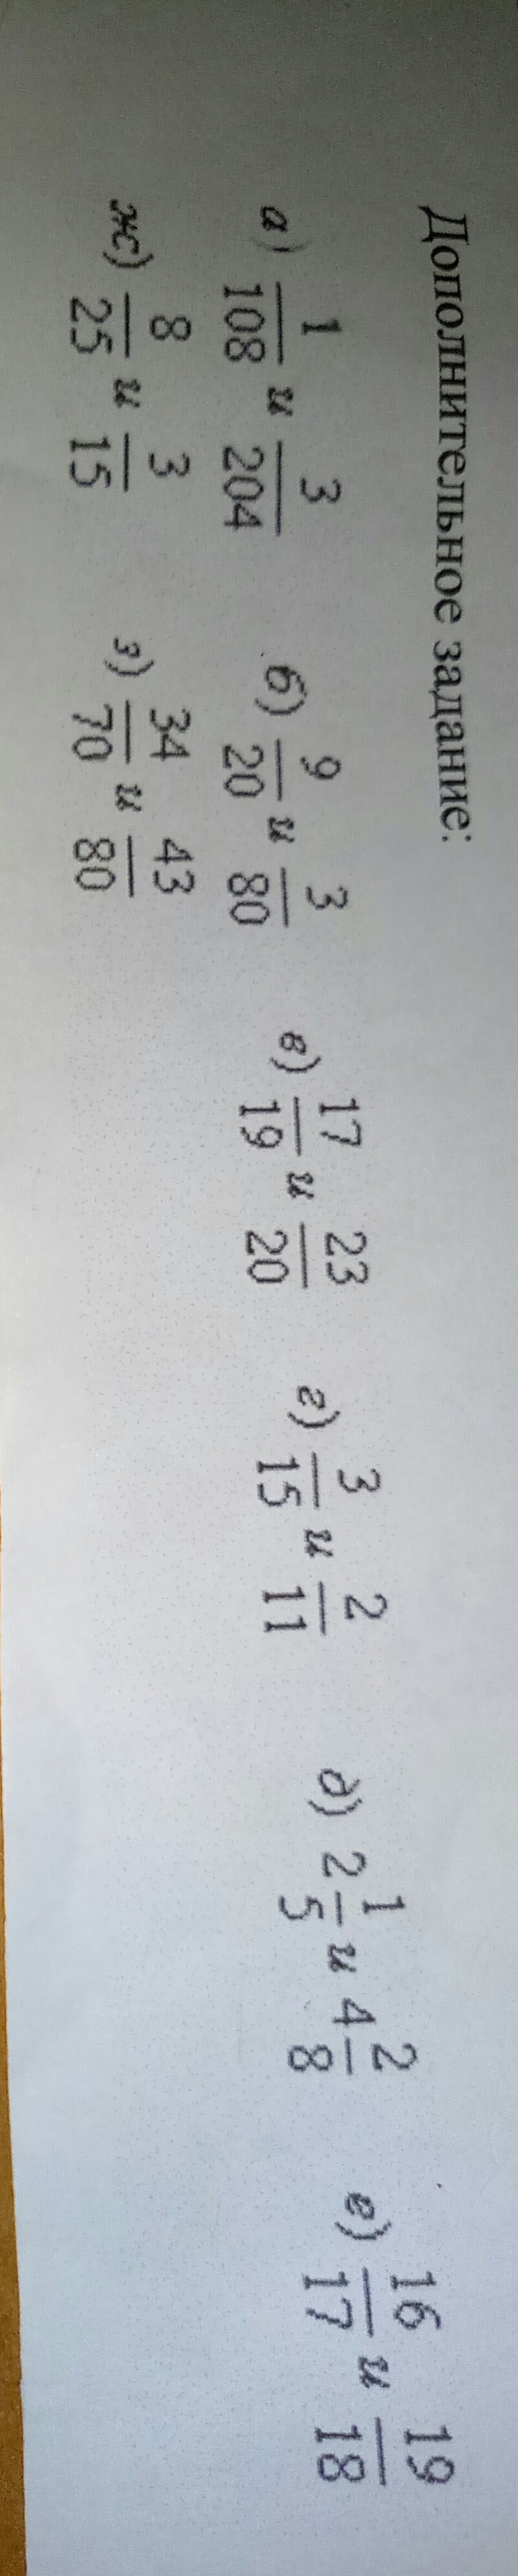 Дополнительное задание:
а) 1/108 и 3/204 б) 9/20 и 3/80 в) 17/19 и 23/20 г) 3/15 и 2/11 д) 2 1/5 и 4 2/8 е) 16/17 и 19/18
ж) 8/25 и 3/15 з) 34/70 и 43/80